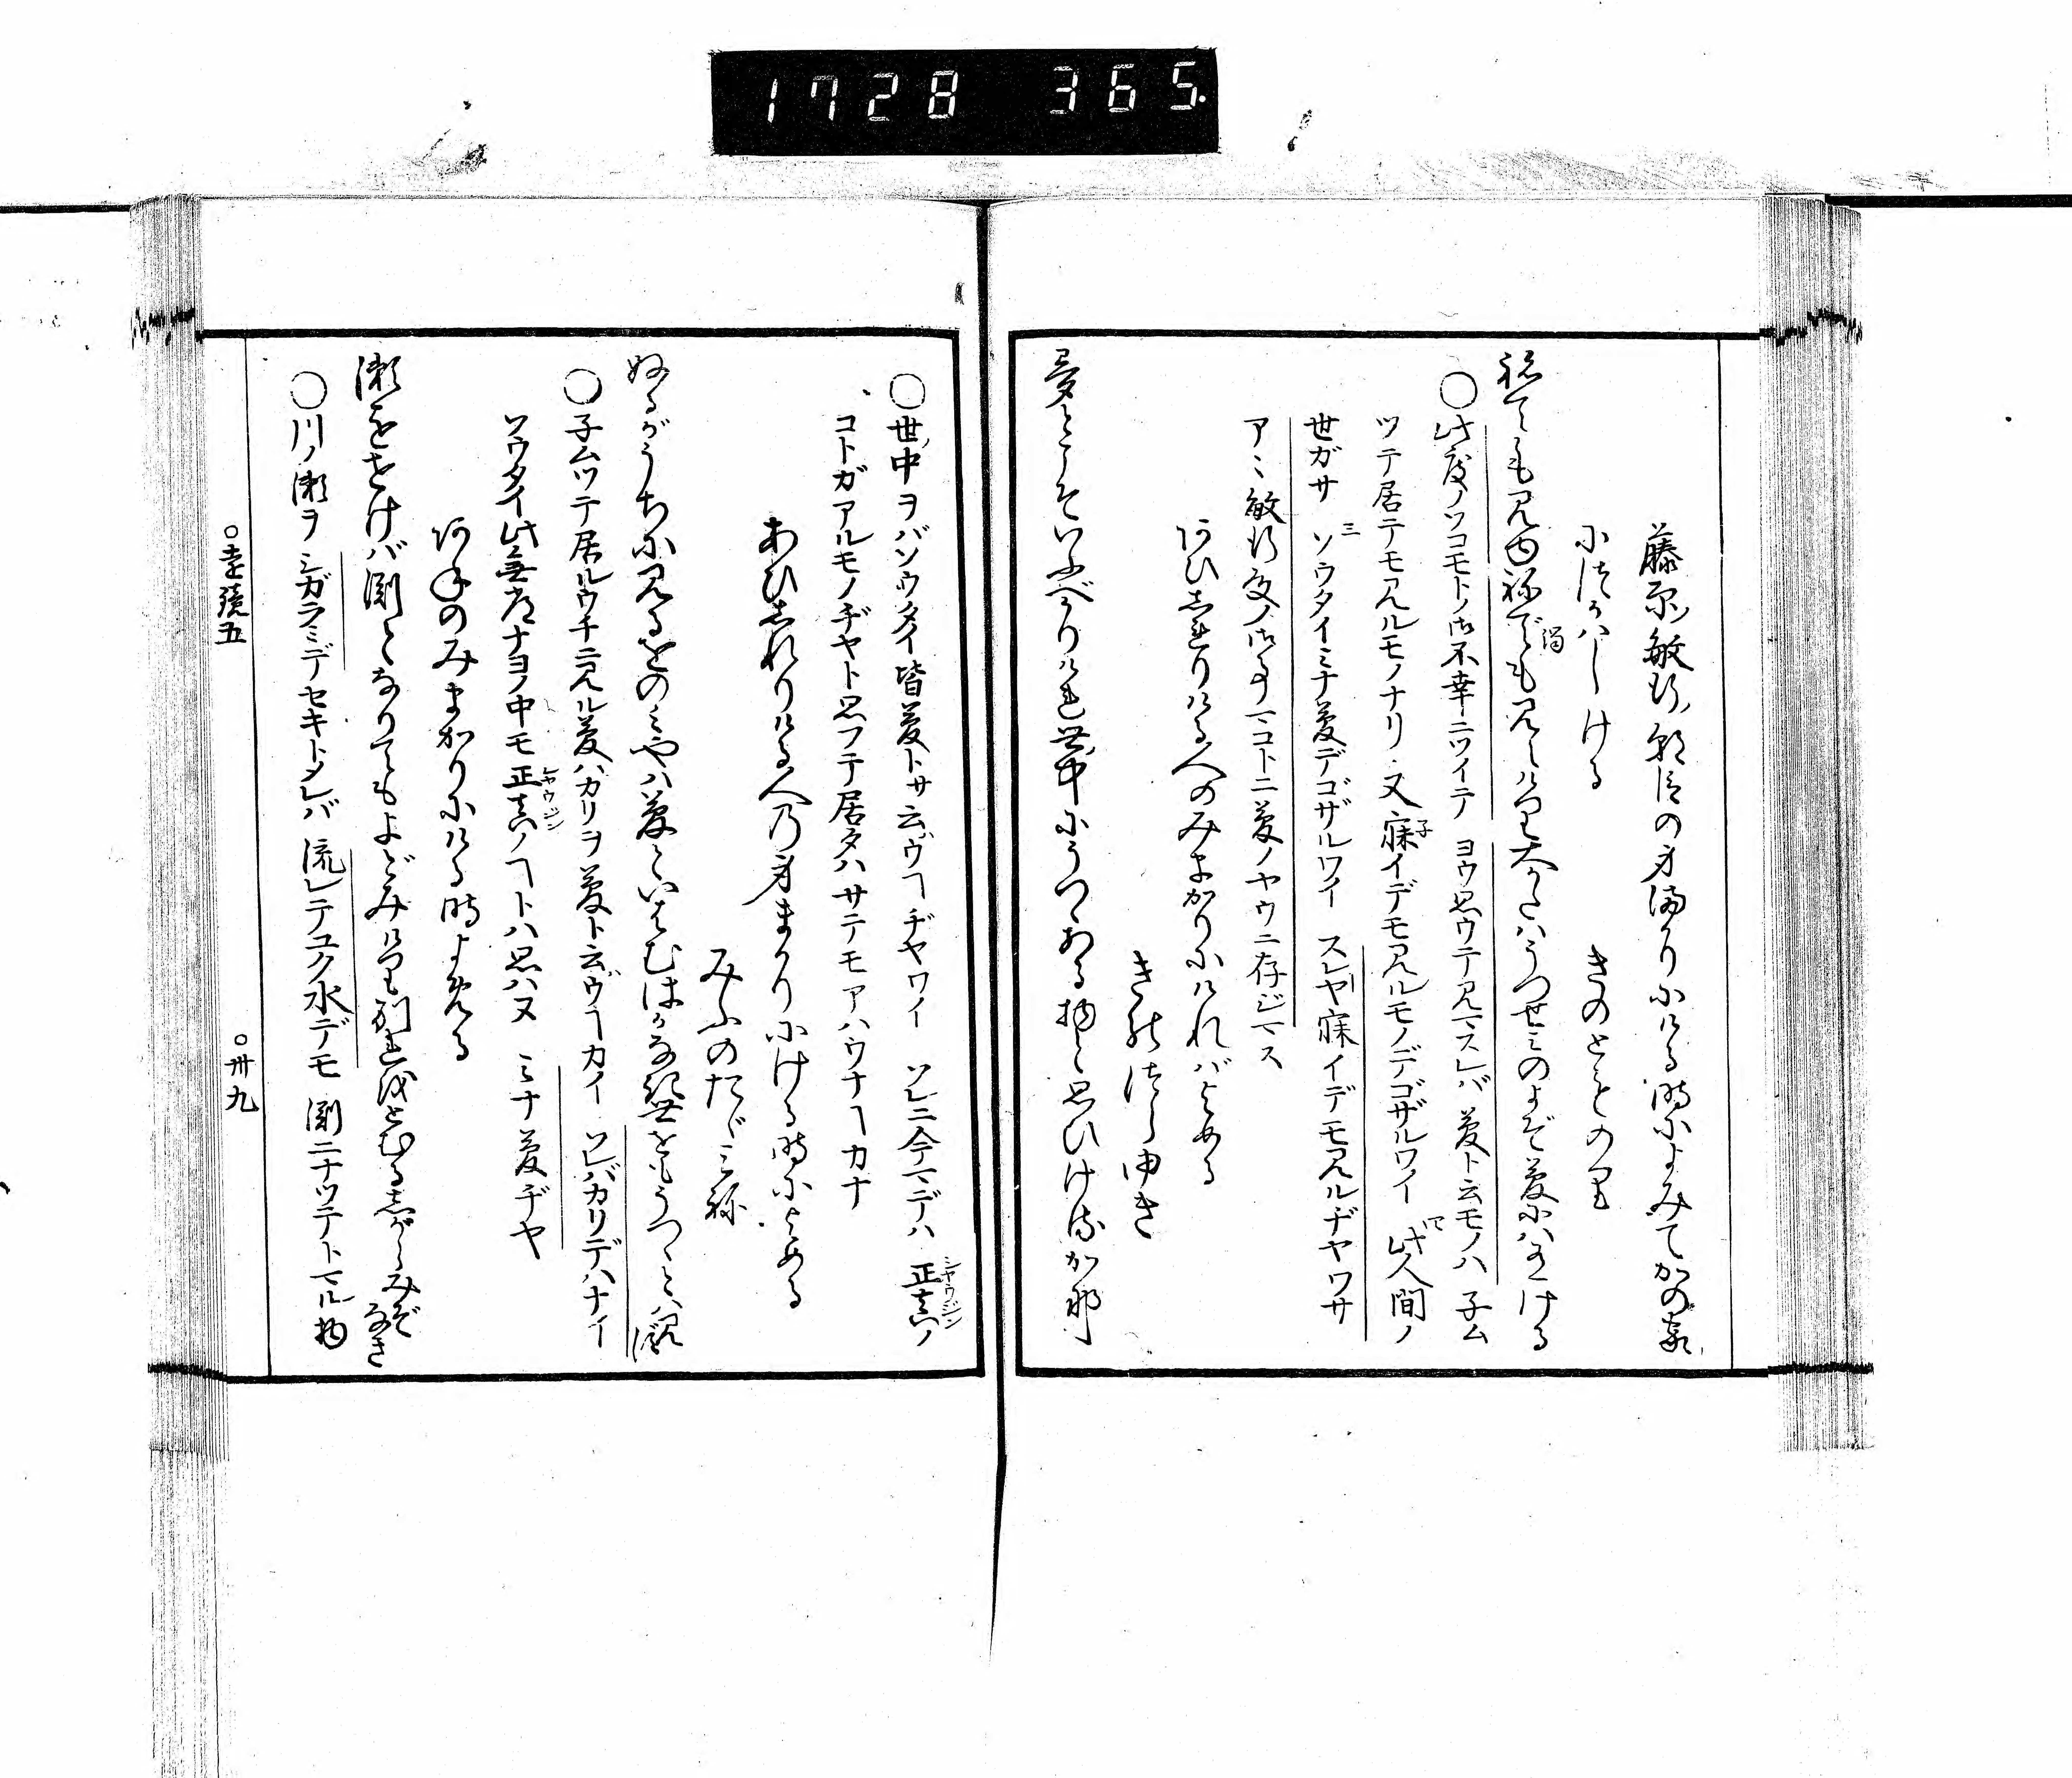 1728 365
藤原ノ敏行ノ朝臣の身まかりにける時によみてかの家
につかはしける
きのとものり
ねても見ゆねでも見えけり大かたはうつせみのよぞ夢には有ける
○此度ノソコモトノ御不幸ニツイテ ヨウ思ウテ見マスレバ 夢ト云モノハ 子ム
ツテ居テモ見ルモノナリ 又寐イデモ見ルモノデゴザルワイ 此人間ノ
世ガサ ソウタイミナ夢デゴザルワイ スレヤ寐イデモ見ルヂヤワサ
アヽ敏行殿ノ御事マコトニ夢ノヤウニ存ジマス
あひしれりける人のみまかりにければよめる
きのつらゆき
夢とこそいふべかりけれ世ノ中にうつゝある物と思ひけるかな
○世ノ中ヲバソウタイ皆夢トサ云ヅヿヂヤワイ ソレニ今マデハ 正真ノ
シヤウジン
コトガアルモノヂヤト思フテ居タハサテモアハウナヿカナ
あひしれりける人の身まかりにける時によめる
みぶのたゞみね
ぬるがうちに見るをのみやは夢といはむはかなき世をもうつゝとは見ず
○子ムツテ居ルウチニ見ル夢バカリヲ夢ト云ヅヿカイ ソレバカリデハナイ
ソウタイ此無常ナヨノ中モ正真ノヿトハ思ハヌ ミナ夢ヂヤ
シヤウジン
あねのみまかりにける時よめる
瀬をせけば淵となりてもよどみけり別れをとむるしがらみぞなき
○川ノ瀬ヲシガラミデセキトメレバ 流レテユク水デモ 淵ニナツテトマル物
○遠鏡五
○卅九